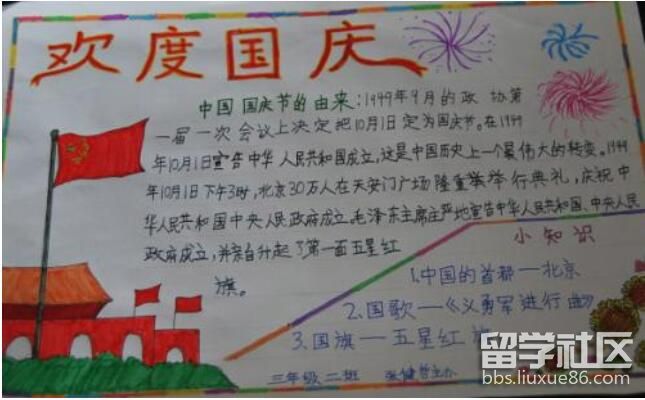 欢度国庆
中国国庆节的由来:1949年9月的政协第
一届一次会议上决定把10月1日定为国庆节。在1949
年10月1日宣告中华人民共和国成立,这是中国历史上一个最伟大的转变。1949
年10月1日下午3时,北京30万人在天安门广场隆重举行典礼,庆祝中
华人民共和国中央人民政府成立。毛泽东主席庄严地宣告中华人民共和国、中央人民
政府成立,并亲自升起了第一面五星红
旗。
小知识
1.中国的首都—北京
2.国歌—《义勇军进行曲》
3.国旗—五星红旗
三年级二班 张健
留学社区
bbs.liuxue86.com